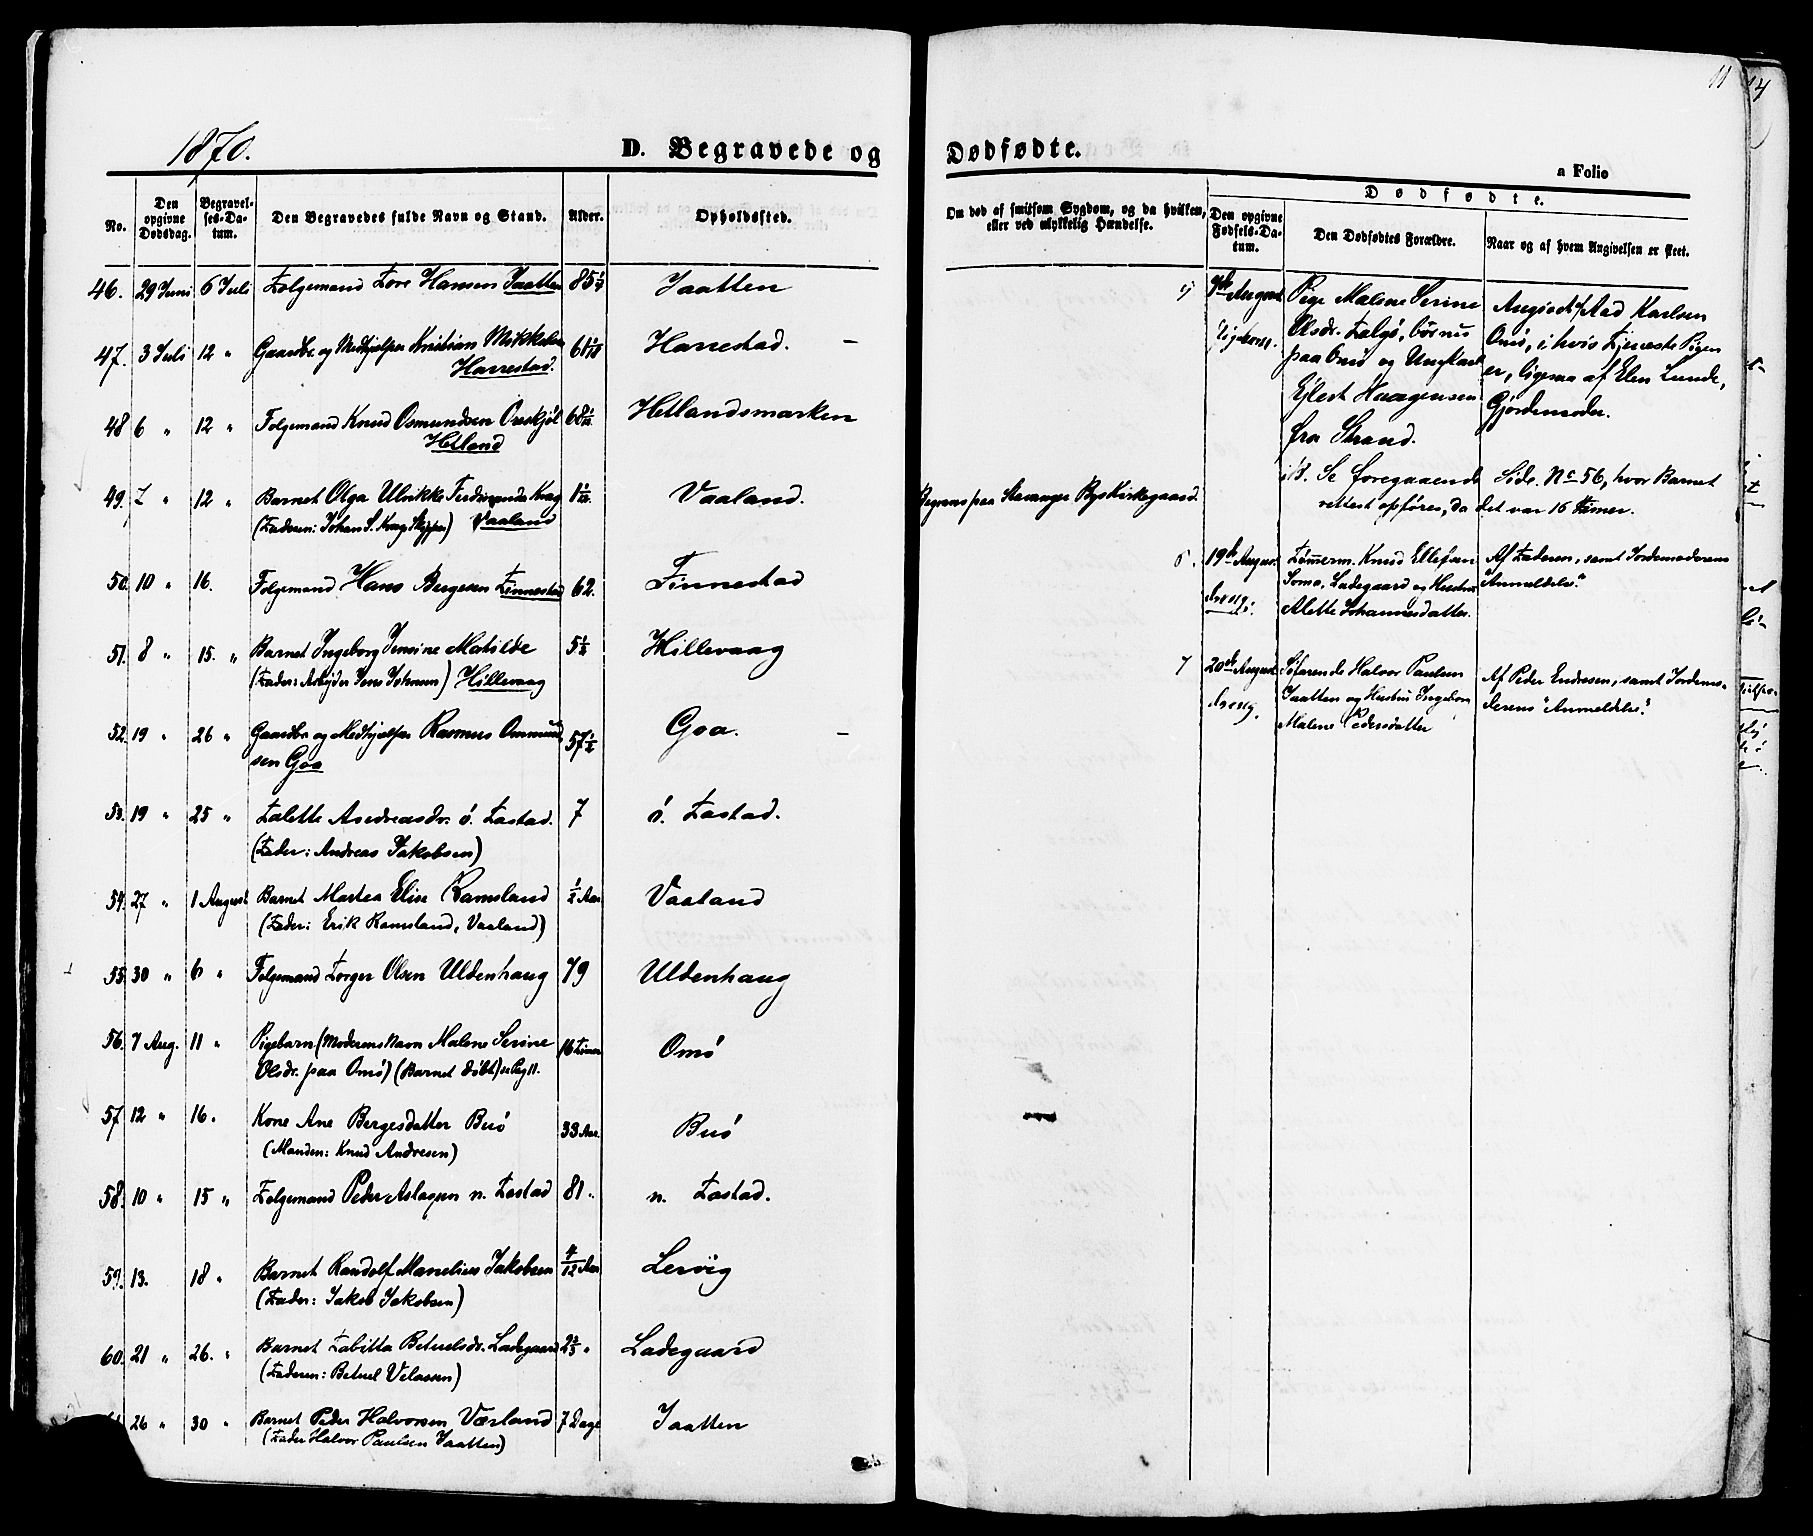 11
14
1870.
D. Begravede og
Dødfødte.
a Folio
No.
Den opgivne Dødsdag.
Begravelses-Datum.
Den Begravedes fulde Navn og Stand.
Alder.
Opholdssted.
Om død af smitsom Sygdom, og da hvilken, eller ved ulykkelig Hændelse.
Dødfødte.
Den opgivne Fødsels-Datum.
Den Dødfødtes Forældre.
Naar og af hvem Angivelsen er skeet.
46. 29 Juni 6 Juli Følgemand Tore Hansen Jaatten 85 Jaatten
47. 3 Juli 12 " Gaardbr. og Medhjælper Kristian Mikkelsen 61 Harrestad. -
Harrestad.
48 6 " 12 " Folgemand Knud Osmundsen 68 Hetlandsmarken
Hetland
49. 7 " 12 " Barnet Olga Ulrikke Ferdinanda Krag 1 Vaaland.
(Faderen: Johan S. Krag Skipper) Vaaland
Begraves paa Stavanger Bys Kirkegaard.
50. 10 " 16. Folgemand Hans Bergesen Finnestad 62. Finnestad
51. 8 " 15. " Barnet Ingeborg Jensine Matilde 5½ Hillevaag
(Fader: Arbejder Jens Johnsen) Hillevaag
52. 19 " 26 " Gaardbr. og Medhjælper Rasmus Ommund 57½ Goa. -
sen Goa
53. 19 " 25 " Talette Andreasdr. ø. Tastad. 7 ø. Tastad.
(Fader: Andreas Jakobsen)
54. 27 " 1 August Barnet Martea Elise Ramsland ½ Aar Vaaland
(Fader: Erik Ramsland, Vaaland)
55. 30 " 6 " Folgemand Torger Olsen Uldenhaug 79 Uldenhaug
56. 7 Aug. 11 " Pigebarn (Moderens Navn Malene Serine 16 Timer Omø
Olsdr. paa Omø) (Barnet døbt) se Pag 11.
57. 12 " 16. Kone Ane Bergesdatter Buø 33 Aar. Buø
(Manden: Knud Andresen)
58. 10 " 15 " Følgemand Peder Aslagsen n. Tastad 81. n. Tastad.
59. 13. 18 " Barnet Randolf Manelius Jakobsen 4/12 Aar Lervig
(Fader: Jakob Jakobsen)
60. 21 " 26. " Barnet Tabitta Betuelsdr. Ladegaard 2⅔ " Ladegaard
(Faderen: Betuel Velassen)
26 " 30 " Barnet Peder Halvorsen Værland 7 Dage Jaatten
(Fader Halvor Paulsen Jaatten)
9de August Pige Malene Serine
Olsdr. Talgø, børnis
paa Omø og Ungkarl
Ejlert Haagensen
fra Strand.
Angivet af Ad Karlsen
Omø, i hvis Tjeneste Pigen
er, ligesaa af Elen Lunde,
Gjordemoder.
Se foregaaende Side. No 56, hvor Barnet
rettest opføres, da det var 16 Timer.
6. 19de August Tømmerm. Knud Ellefsen
Soma, Ladegaard og Hustru
Alette Johannesdatter.
Af Faderen, samt Jordemoderens
"Anmeldelse."
7 20de August Søfarende Halvor Paulsen
Jaatten og Hustru Ingeborg
Malene Pedersdatter
Af Peder Endresen, samt Jordemo-
derens "Anmeldelse."